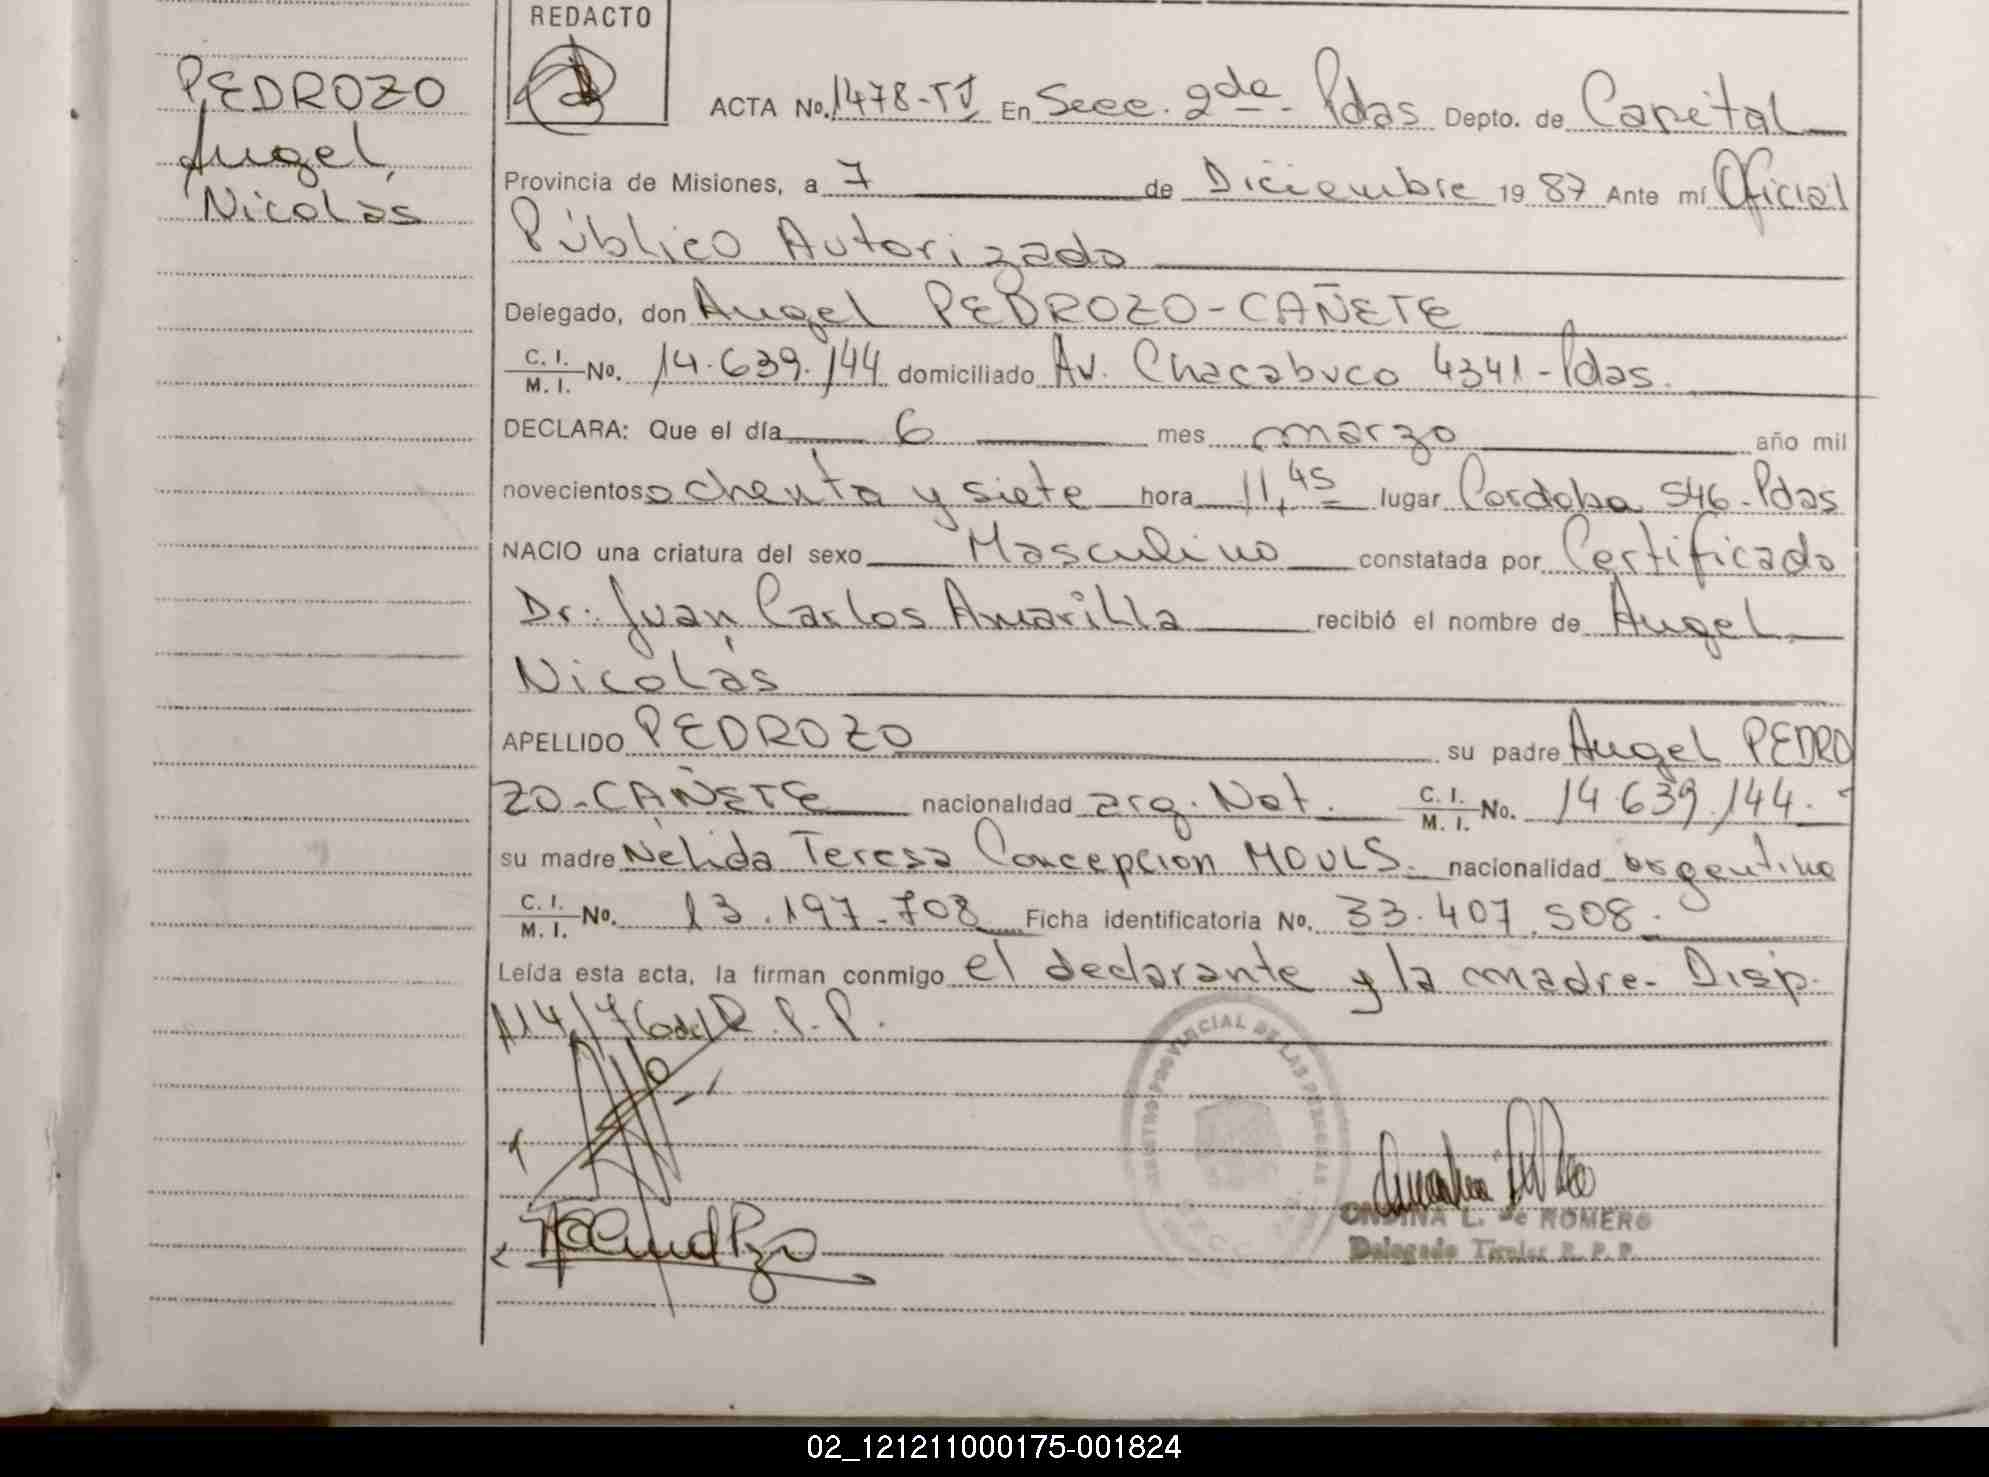 REDACTO
PEDROZO
Angel
Nicolás
ACTA No. 1478-TJ En Secc. 2da - Pdas Depto. de Capital
Provincia de Misiones, a 7 de Diciembre 19 87 Ante mí Oficial
Público Autorizado
Delegado, don Angel PEDROZO-CAÑETE
C. I. / M. I. No. 14.639.144 domiciliado Av. Chacabuco 4341 - Pdas.
DECLARA: Que el día 6 mes marzo año mil
novecientos ochenta y siete hora 11,45 lugar Cordoba 546 - Pdas
NACIO una criatura del sexo Masculino constatada por Certificado
Dr. Juan Carlos Amarilla recibió el nombre de Angel
Nicolás
APELLIDO PEDROZO su padre Angel PEDRO
ZO-CAÑETE nacionalidad arg. Nat. C. I. / M. I. No. 14.639.144.-
su madre Nélida Teresa Concepcion MOULS. nacionalidad argentina
C. I. / M. I. No. 13.197.708 Ficha identificatoria No. 33.407.508.
Leída esta acta, la firman conmigo el declarante y la madre - Disp.
114/76 del R.P.P.
REGISTRO PROVINCIAL DE LAS PERSONAS
ONDINA L. de ROMERO
Delegado Titular R. P. P.
02_121211000175-001824